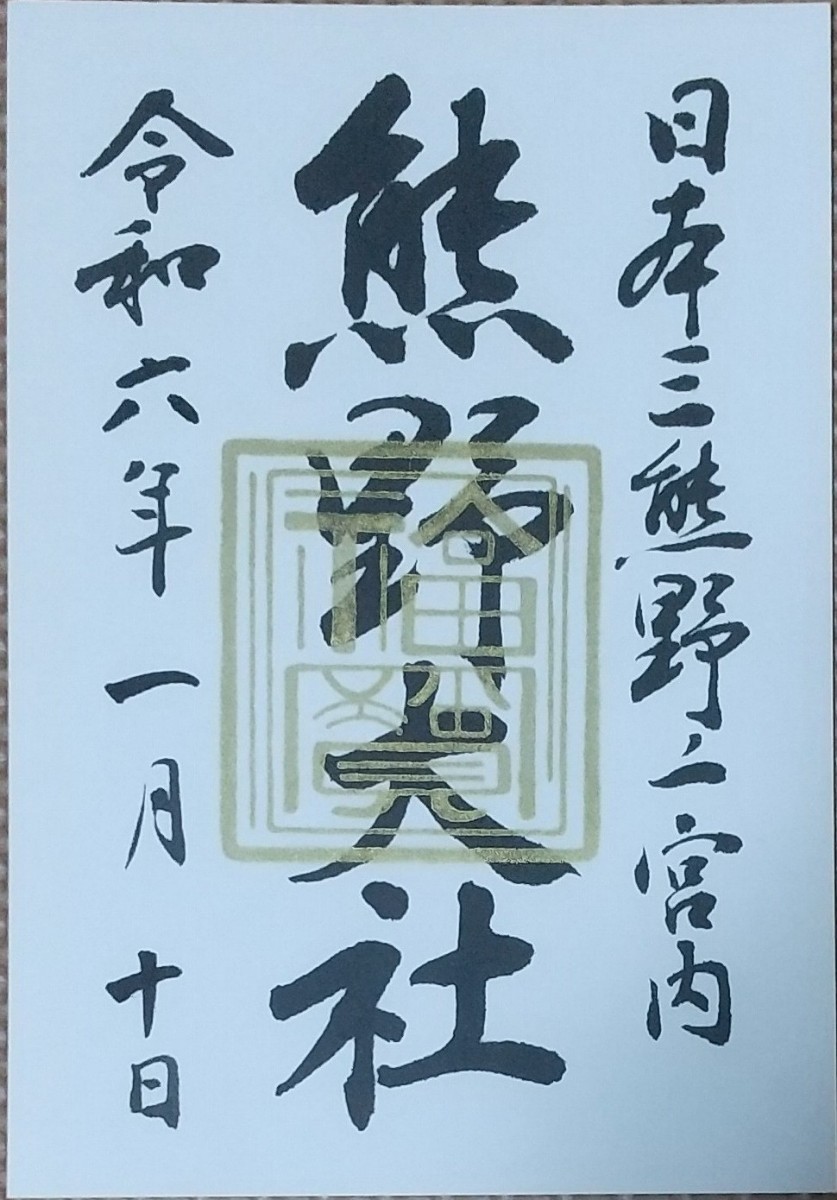 日本三熊野之一宮内
熊野大社
令和六年一月十日